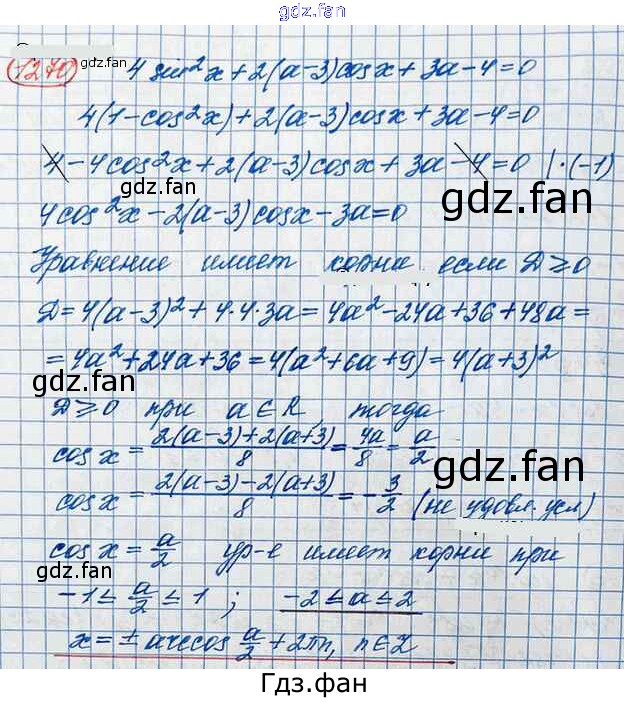 gdz.fan
1270 4 sin²x + 2(a-3)cosx + 3a-4=0
gdz.fan
4(1-cos²x) + 2(a-3)cosx + 3a-4=0
4 - 4cos²x + 2(a-3)cosx + 3a - 4 = 0 | ·(-1)
gdz.fan
gdz.fan
4cos²x - 2(a-3)cosx - 3a = 0
Уравнение имеет корни если D ≥ 0
D = 4(a-3)² + 4·4·3a = 4a² - 24a + 36 + 48a =
= 4a² + 24a + 36 = 4(a² + 6a + 9) = 4(a+3)²
gdz.fan
D ≥ 0 при a ∈ R, тогда
cos x = (2(a-3) + 2(a+3))/8 = 4a/8 = a/2
gdz.fan
cos x = (2(a-3) - 2(a+3))/8 = -3/2 (не удовл. усл)
cos x = a/2 ур-е имеет корни при
gdz.fan
-1 ≤ a/2 ≤ 1 ; -2 ≤ a ≤ 2
gdz.fan
x = ± arccos a/2 + 2πn, n ∈ Z
Гдз.фан